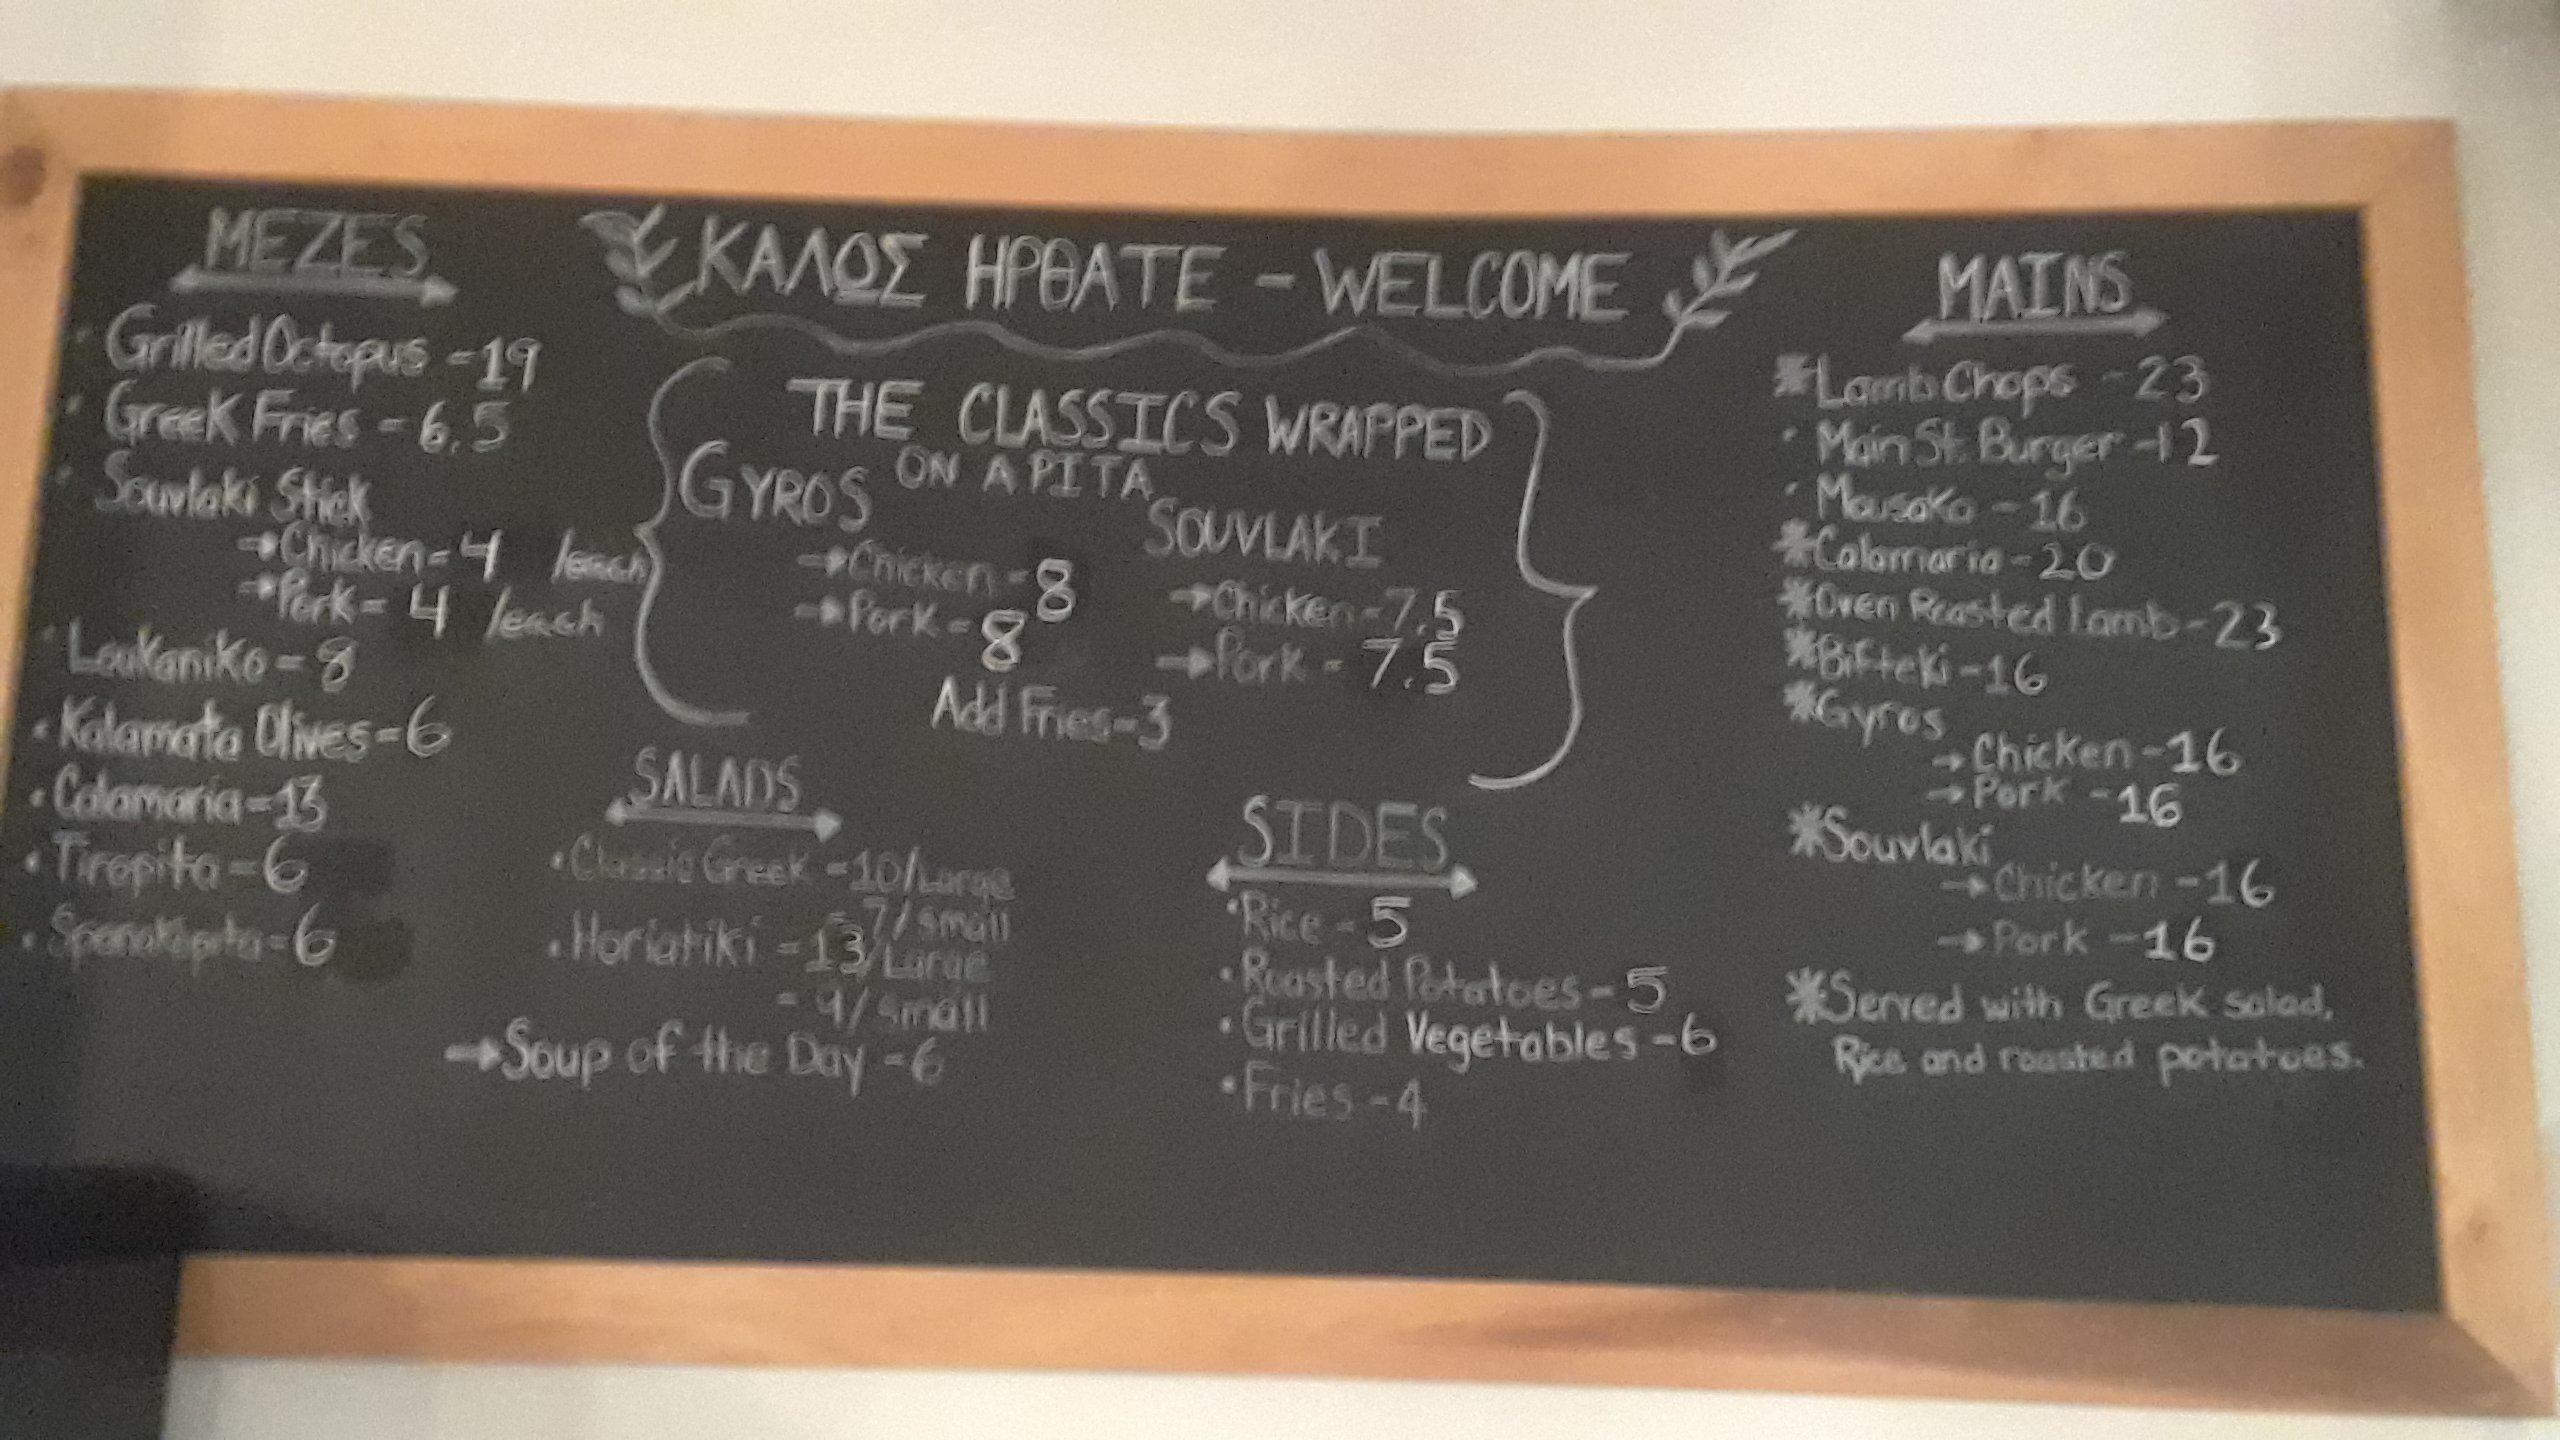 ΚΑΛΩΣ ΗΡΘΑΤΕ - WELCOME
MEZES
Grilled Octopus - 19
Greek Fries - 6.5
Souvlaki Stick
→ Chicken - 4 /each
→ Pork - 4 /each
Loukaniko - 8
Kalamata Olives - 6
Calamaria - 13
Tiropita - 6
Spanakopita - 6
THE CLASSICS WRAPPED
ON A PITA
GYROS
→ Chicken - 8
→ Pork - 8
SOUVLAKI
→ Chicken - 7.5
→ Pork - 7.5
Add Fries - 3
SALADS
Classic Greek - 10/Large
- 7/small
Horiatiki - 13/Large
- 9/small
→ Soup of the Day - 6
SIDES
Rice - 5
Roasted Potatoes - 5
Grilled Vegetables - 6
Fries - 4
MAINS
*Lamb Chops - 23
Main St. Burger - 12
Mousaka - 16
*Calamaria - 20
*Oven Roasted Lamb - 23
*Bifteki - 16
*Gyros
→ Chicken - 16
→ Pork - 16
*Souvlaki
→ Chicken - 16
→ Pork - 16
*Served with Greek salad,
Rice and roasted potatoes.